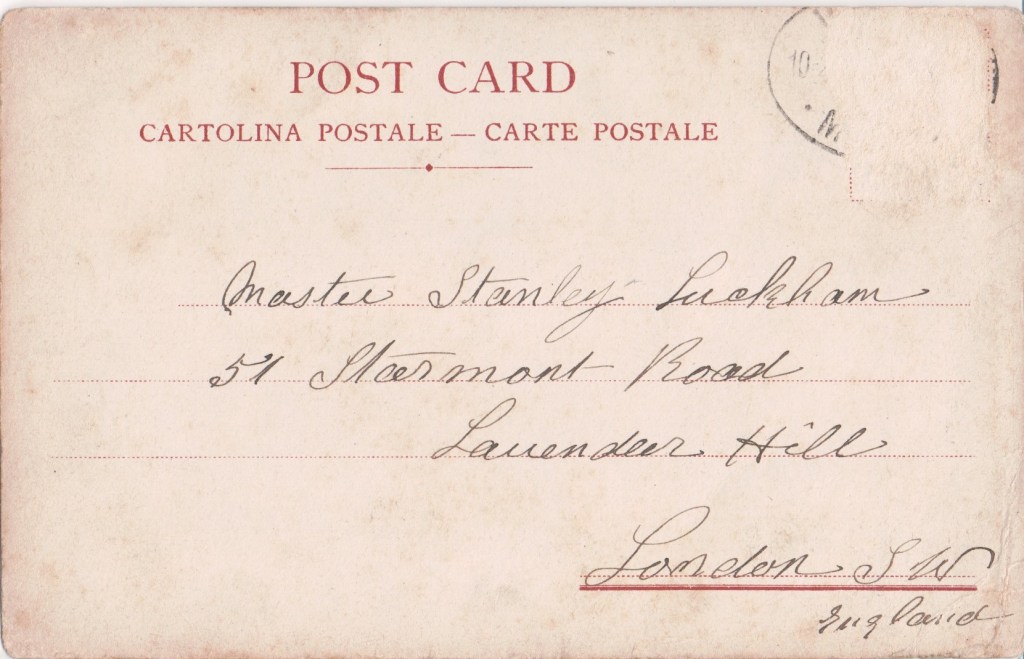 POST CARD
CARTOLINA POSTALE — CARTE POSTALE
10
M
Master Stanley Luckham
51 Stormont Road
Lavender Hill
London S W
England